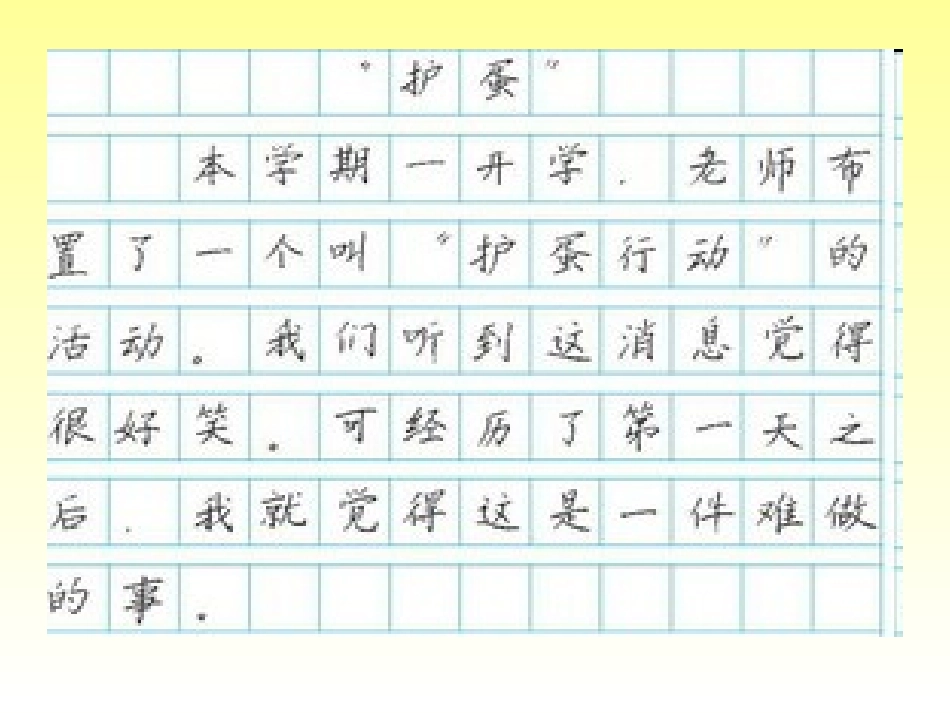 “护蛋”
本学期一开学，老师布
置了一个叫“护蛋行动”的
活动。我们听到这消息觉得
很好笑。可经历了第一天之
后，我就觉得这是一件难做
的事。